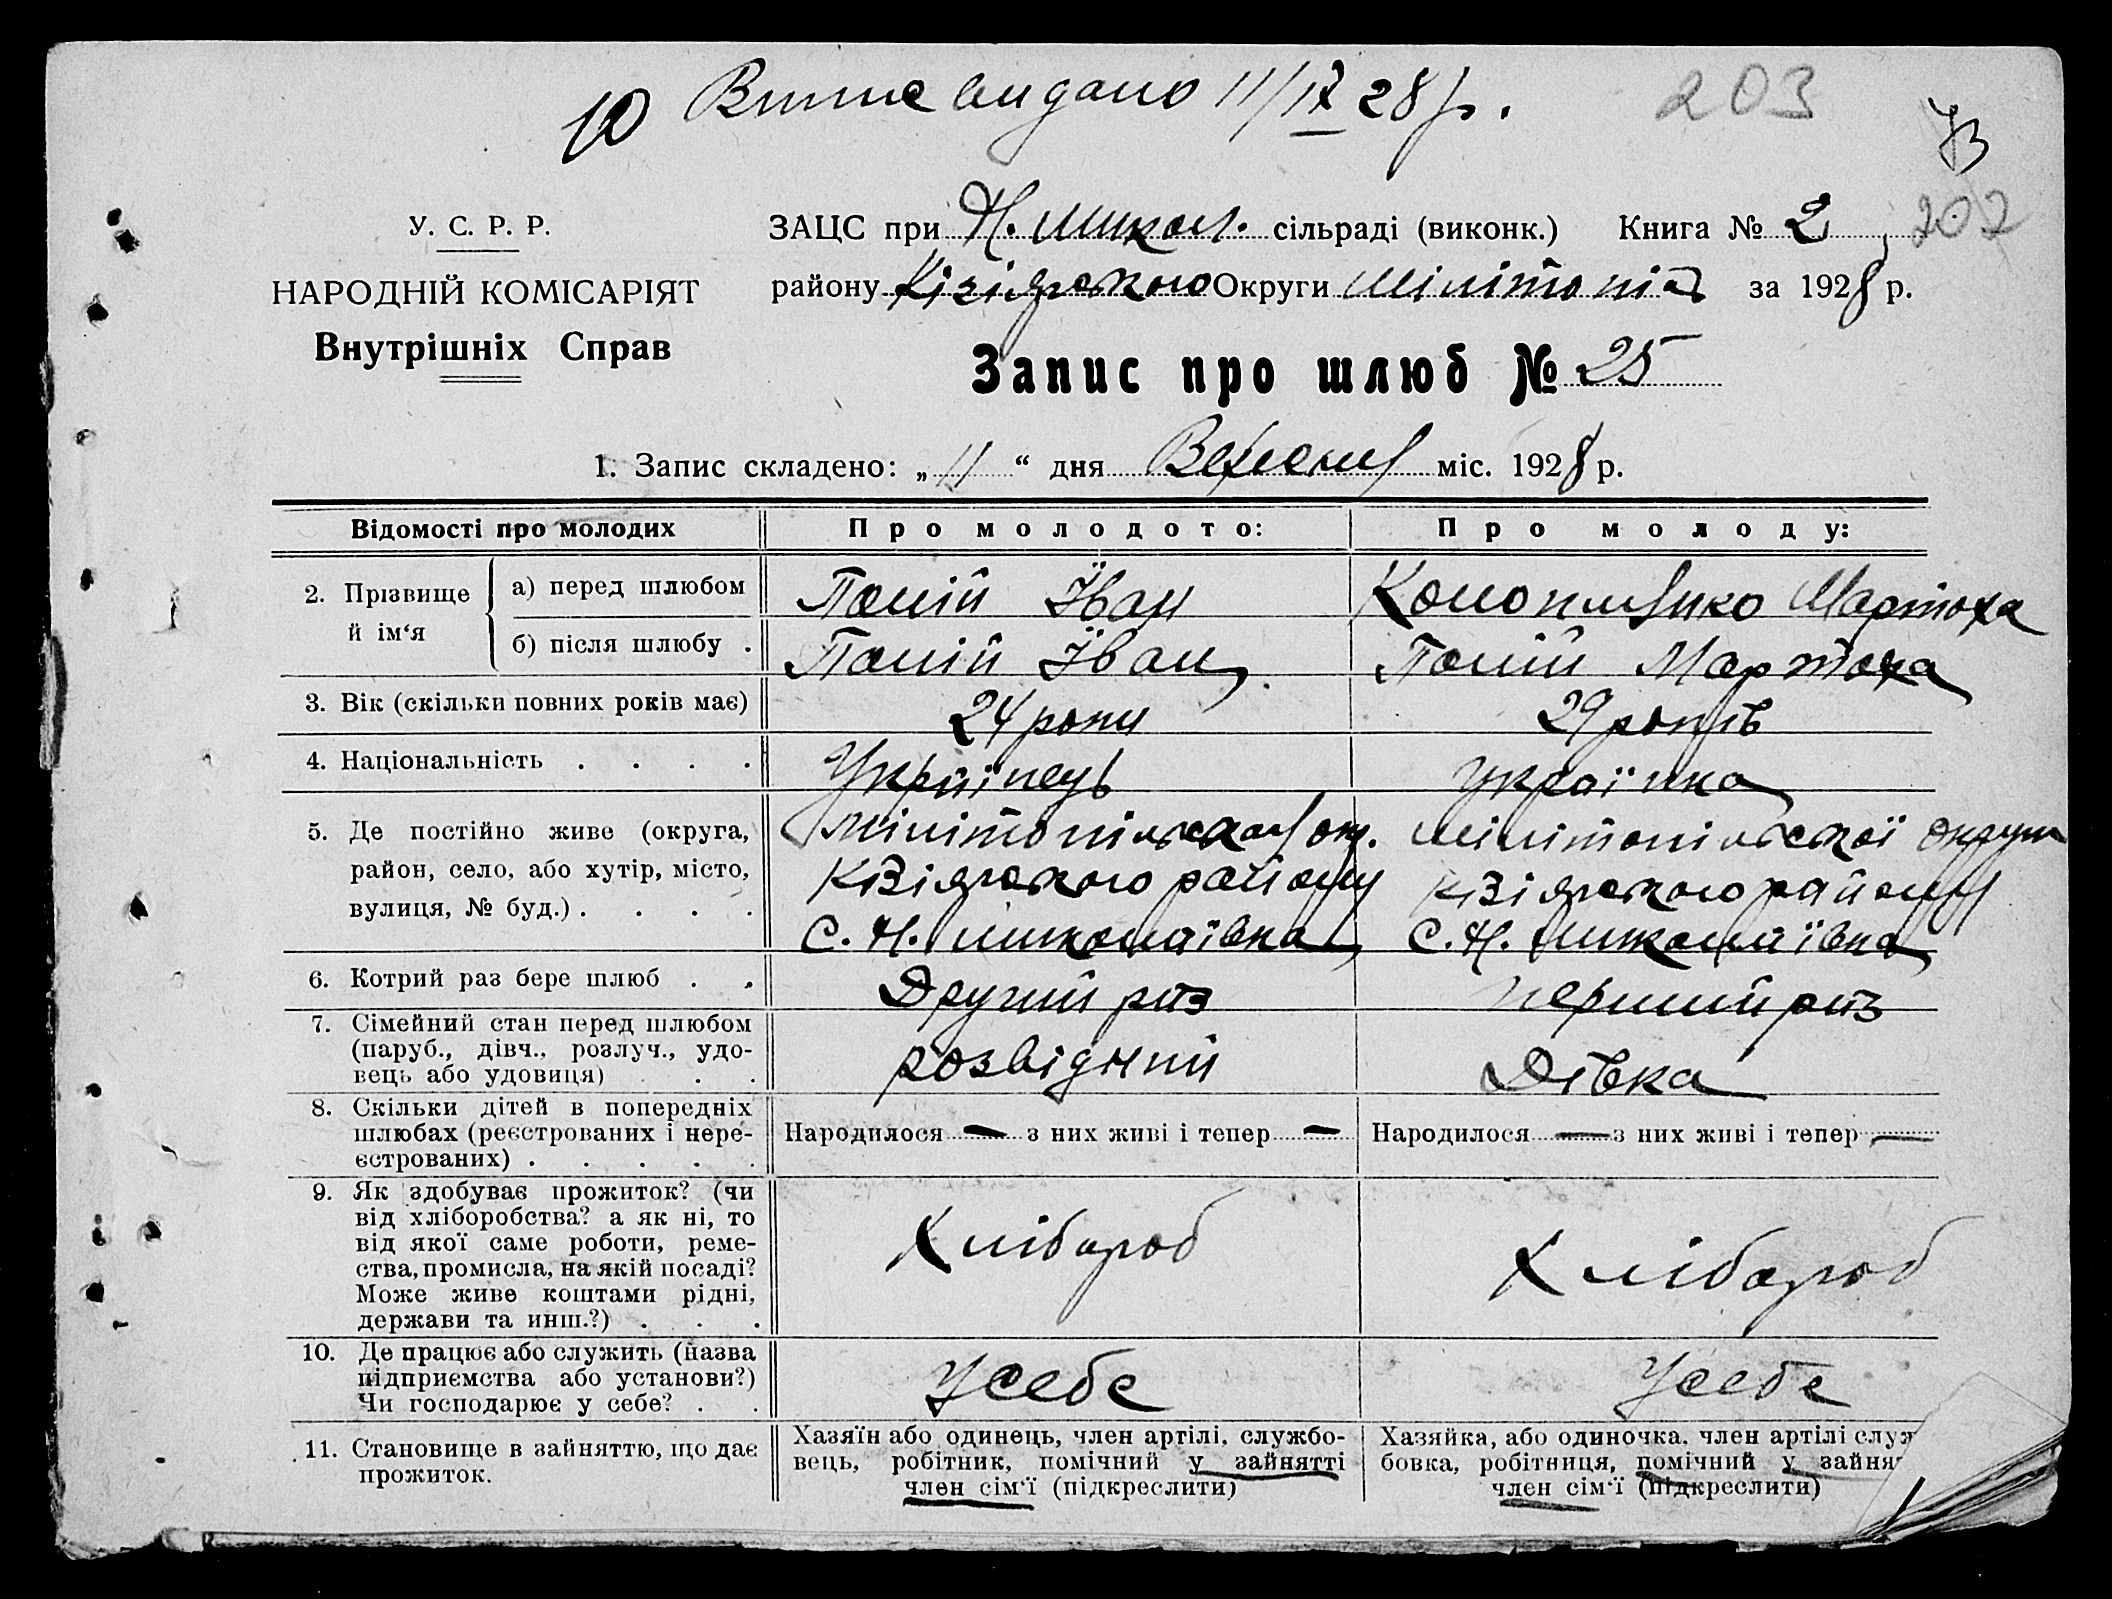 10 Випис видано 11/IX 28 р. 203
73
У. С. Р. Р. ЗАЦС при Н. Микол. сільраді (виконк.) Книга № 2 202
НАРОДНІЙ КОМІСАРІЯТ району Кізіярского Округи Мілітопіль за 1928 р.
Внутрішніх Справ
Запис про шлюб № 25
1. Запис складено: „11“ дня Вересня міс. 1928 р.
Відомості про молодих Про молодого: Про молоду:
2. Прізвище й ім‘я
а) перед шлюбом Палій Іван Конопляико Мартоха
б) після шлюбу . Палій Іван Палій Мартоха
3. Вік (скільки повних років має) 24 роки 29 років
4. Національність . . . . Украінець Украінка
5. Де постійно живе (округа, Мілітопільская ок. Мілітопільскої округи
район, село, або хутір, місто, Кізіярского району Кізіярского району
вулиця, № буд.) . . . . С. Н. Миколаївка С. Н. Миколаївка
6. Котрий раз бере шлюб . . Другий раз перший раз
7. Сімейний стан перед шлюбом
(паруб., дівч., розлуч., удо- розвідний Дівка
вець або удовиця) . . .
8. Скільки дітей в попередніх
шлюбах (реєстрованих і нере- Народилося — з них живі і тепер — Народилося — з них живі і тепер —
єстрованих) . . . . .
9. Як здобуває прожиток? (чи
від хліборобства? а як ні, то
від якої саме роботи, реме- Хлібороб Хлібороб
ства, промисла, на якій посаді?
Може живе коштами рідні,
держави та инш.?) . . .
10. Де працює або служить (назва
підприємства або установи?) Усебе Усебе
Чи господарює у себе? . .
11. Становище в зайняттю, що дає Хазяїн або одинець, член артілі, службо- Хазяйка, або одиночка, член артілі служ
прожиток. вець, робітник, помічний у зайнятті бовка, робітниця, помічний у зайня
член сім‘ї (підкреслити) член сім‘ї (підкреслити)